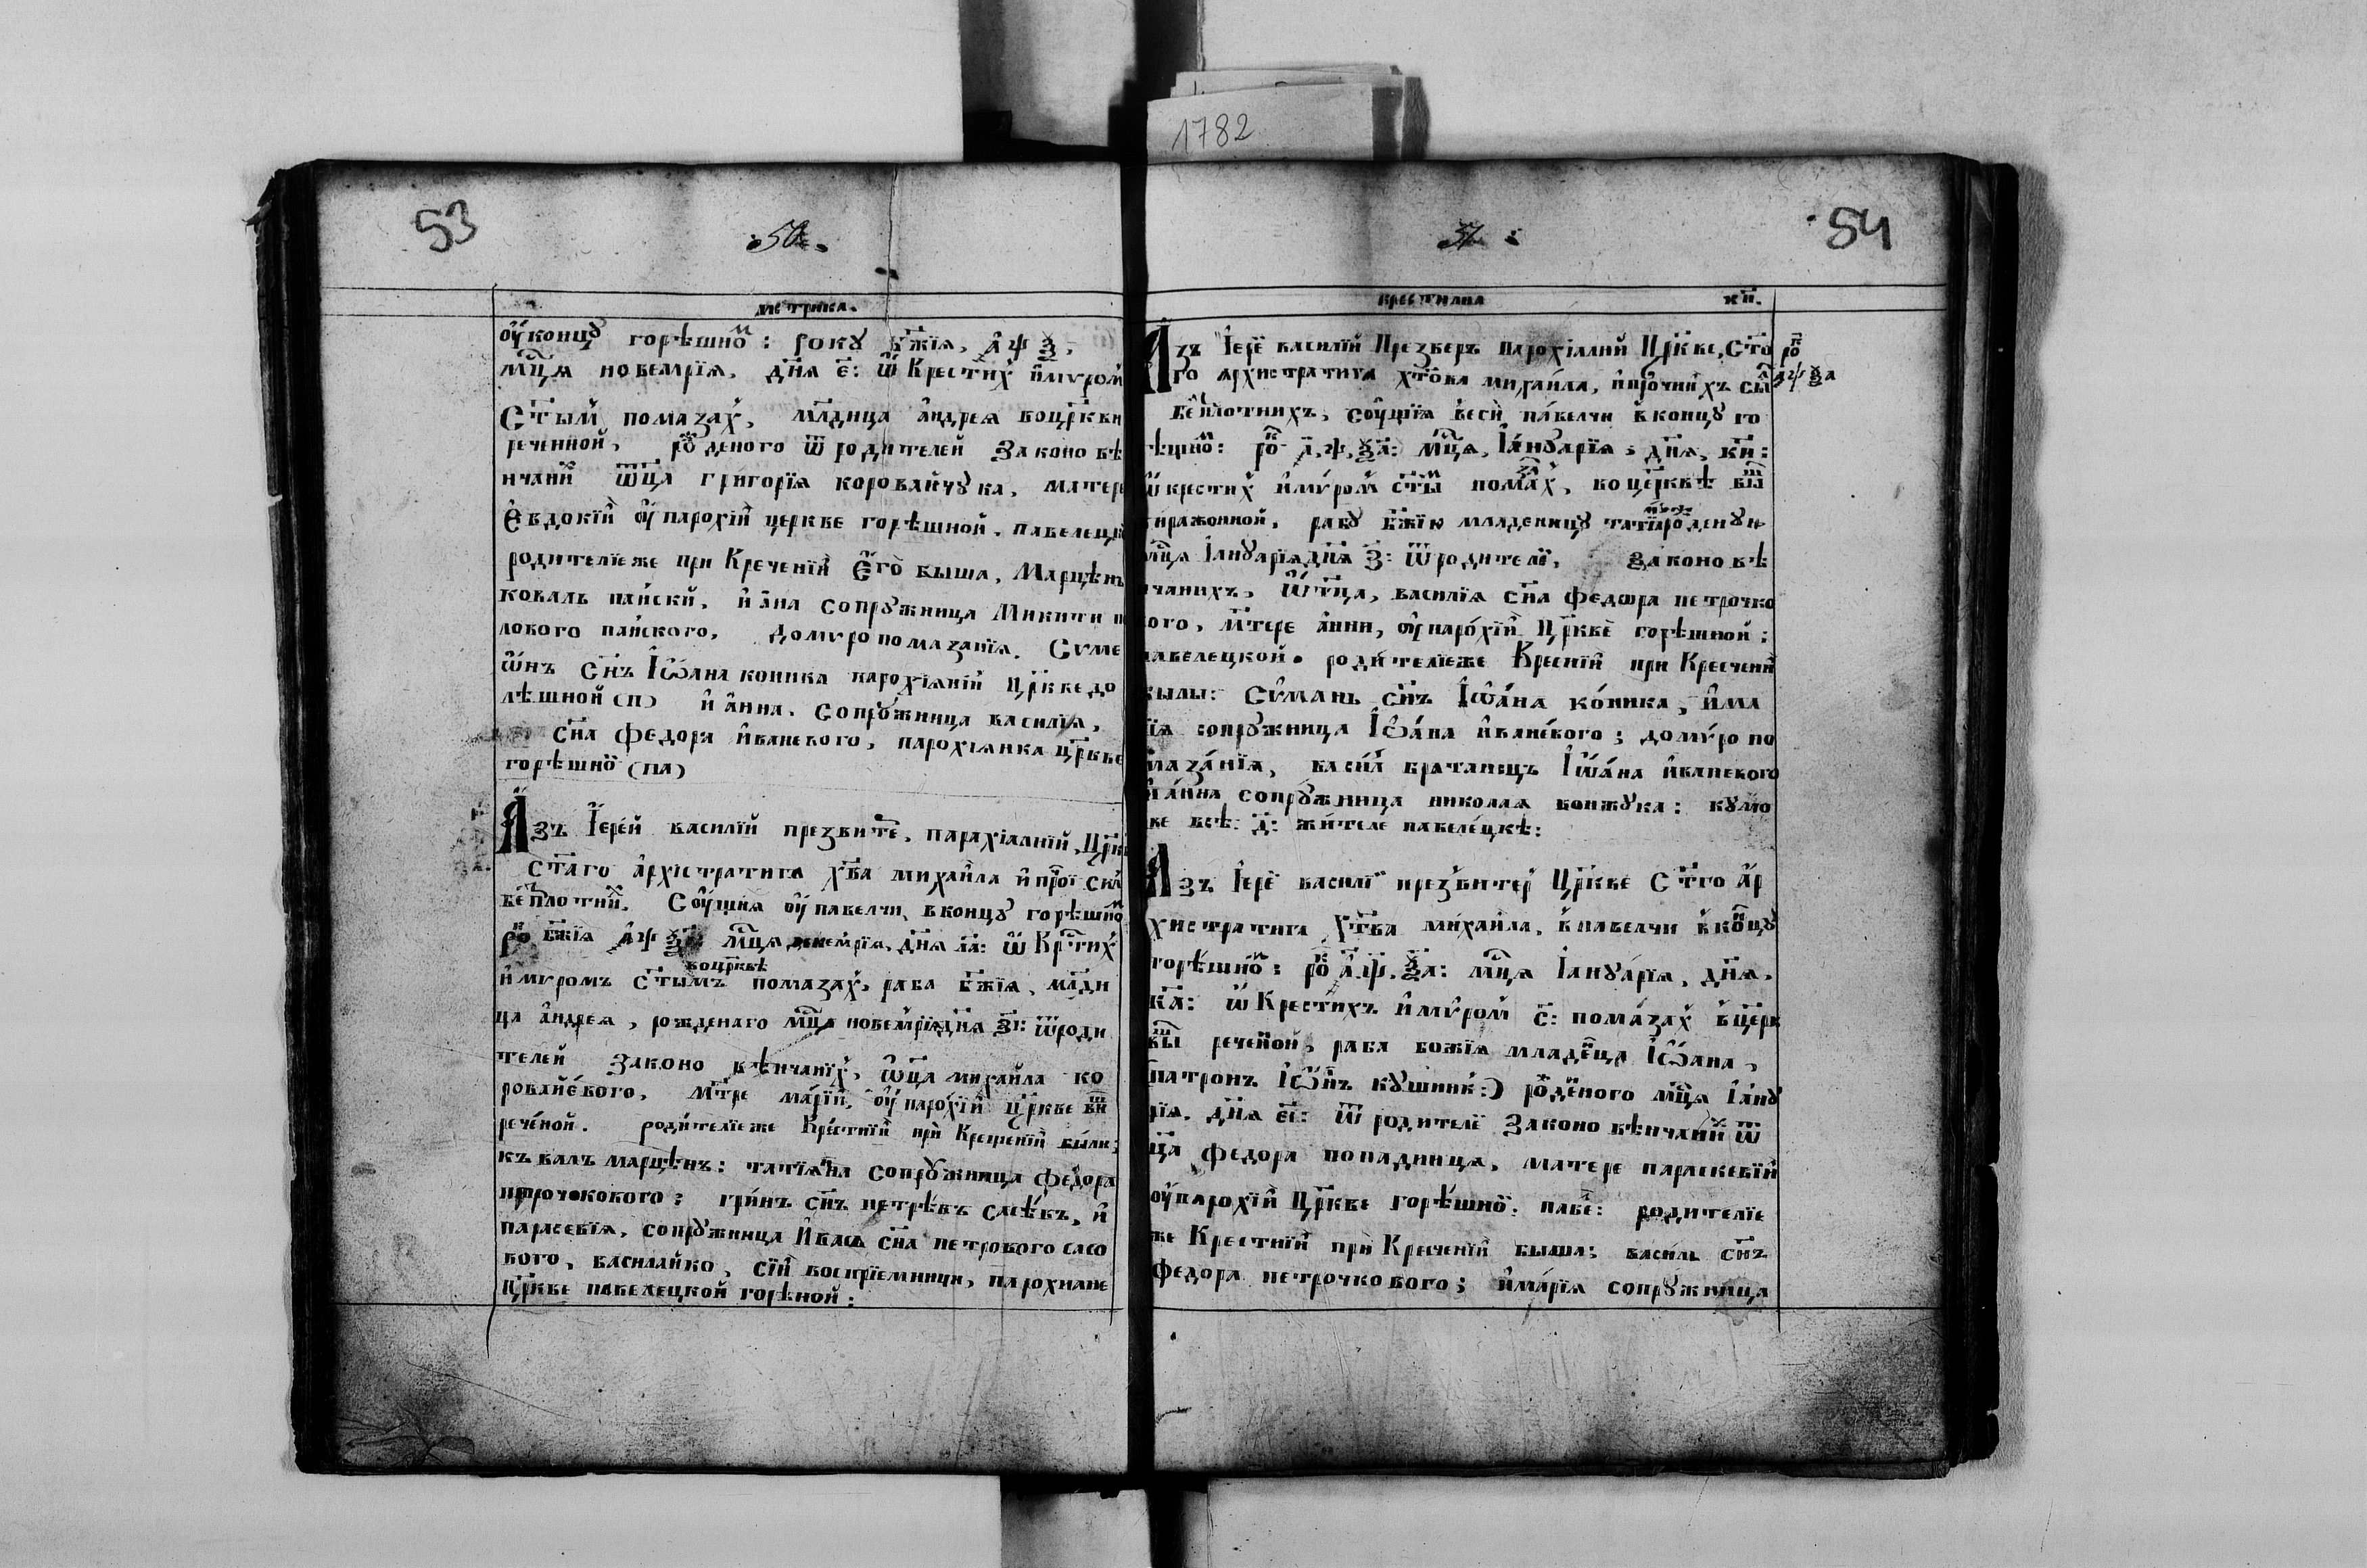 1782
53
50
метрика.
оу̓ концꙋ горѣшно̆м : рокꙋ бж҃їя, ҂аѱѯ,
мц҃ѧ новемрїя, дн҃я е҃: ѿ Крестих и̓мѵром
ст҃ым помазах, млдица а̓ндрея воцр҃кви
реченной, рожденого ѿ родителей Законо вѣ
нчаний ѿц҃а григорїя коровайчꙋка, матере
Е̓вдокїй оу̓ парохїй церкве горѣшной, павелец
родителїеже при Креченїй Е̓го̀ быша, Марцѣнъ
коваль панский, и̓ а̓на сопрꙋжница Микити
лового панского, домѵропомазанїя. Сѵме
ѡ̓нъ сн҃ъ Іѡана копика парохїяній цр҃кве до
лѣшной (п) и̓ а̓нна. сопрꙋжница василїя,
сн҃а федора и̓ваневого, парохїянка цр҃кве
горѣшно̆ (па)
Азъ Іере́й василїй презвите, парахїалнїй, Цр҃к
ст҃аго а̓рхїстратига хв҃а михаила и̓ про̆ї сил
беплотни. Соу̓щия оу̓ павелчи, вконцꙋ горѣшно
ро бж҃їя ҂аѱѯ: мц҃ѧ декемрїя, дн҃я ла: ѿ Крⷭ҇тих
воцр҃квѣ
и̓мѵромъ ст҃ымъ помазах, раба бж҃їя, млади
ца а̓ндрея, рожденаго мц҃ѧ новемрїя дн҃я з҃і: ѿроди
телей Законо вѣнчанїх, ѿц҃а михайла ко
ровайевого, мт҃ре ма́рїй, оу̓ паро́хїй цр҃кве вы
рече́ной. родителїеже Кре́стнїй прѝ Крещенїй были;
къвалъ марцѣнъ: татїяна сопрꙋжница федора
петрочокового: гри́нъ сн҃ъ петрѣвъ сасѣвъ, и̓
парасевїя, сопрꙋжница И̓вася сн҃а петрового сасо
вого, василайко, сїй восприемници, парохияне
цр҃кве павелецкой горѣной:
54
51
крестилна кн҃.
Азъ І̓ерӗ василїй Презверъ парохїалний Цр҃кве, Ст҃о
ро ҂аѱѯа
го архистратига хт҃ова михаила, и̓прочиихъ сил
беплотнихъ, соу̓щїя вeси̇̀ па́велчи в̓концꙋ го
рѣшно̆: ро ҂а, ѱ, ѯа: мц҃ѧ, Іа́нꙋарїя, дн҃я, кн҃:
ѿкрести́х и̓мѵром ст҃ым помазах, воцерквѣ вы
ираженной, рабꙋ бж҃їю младеницꙋ татїа̂ роденꙋи
мц҃ѧ Іанꙋарїя дн҃я з҃: ѿродителї, законо вѣ
нчанихъ, ѿт҃ца, василїя сн҃а федѡра петрочко
вого, мт҃ере а́нни, оу̓паро́хїй Цр҃кве̂ горѣшной:
павелецкой. роди́телїеже Креснїй при Креченїй
были: Сѵмань сн҃ъ Іѡ̓а́на ко́пика, и̓ма
рїя сопрꙋжница Іѡ̓а́на и̓ване́вого; домѵ́ропо
маза́нїя, васил братанецъ Іѡ̓а́на и̓ваневого
и̓ а́нна сопрꙋжница николая вонжꙋка: кꙋмо
ве всѣ: д҃: жи́теле павеле́цкѣ:
Азъ І́ерӗ василї презви́тер Цр҃кве Ст҃го а̓р
хистратига Хт҃ва михаила, в̓павелчи в̓концꙋ
горѣшно̆: ро ҂а.ѱ.ѯа: мц҃ѧ Іанꙋа́рїя, дн҃я.
ка: ѿ Крести́хъ и̓мѵ́ром с҃: пома́зах в̓церк
вы речено́й, раба божїя младенца Іѡ̓ана,
патронъ Іѡ̓нъ кꙋшник:) роденого мц҃ѧ І́анꙋ
рїя, дн҃я еі: ѿ родителӗ Законо вѣнчаний ѿ
ца федора попадинця, матере параскевїй
оу̓парохїй Цр҃кве горѣшно̆: паве: родителїе
же Крестнїй прѝ Креченїй быша; василь сн҃ъ
федора петрочкового; и̓ма́рїя сопрꙋжница